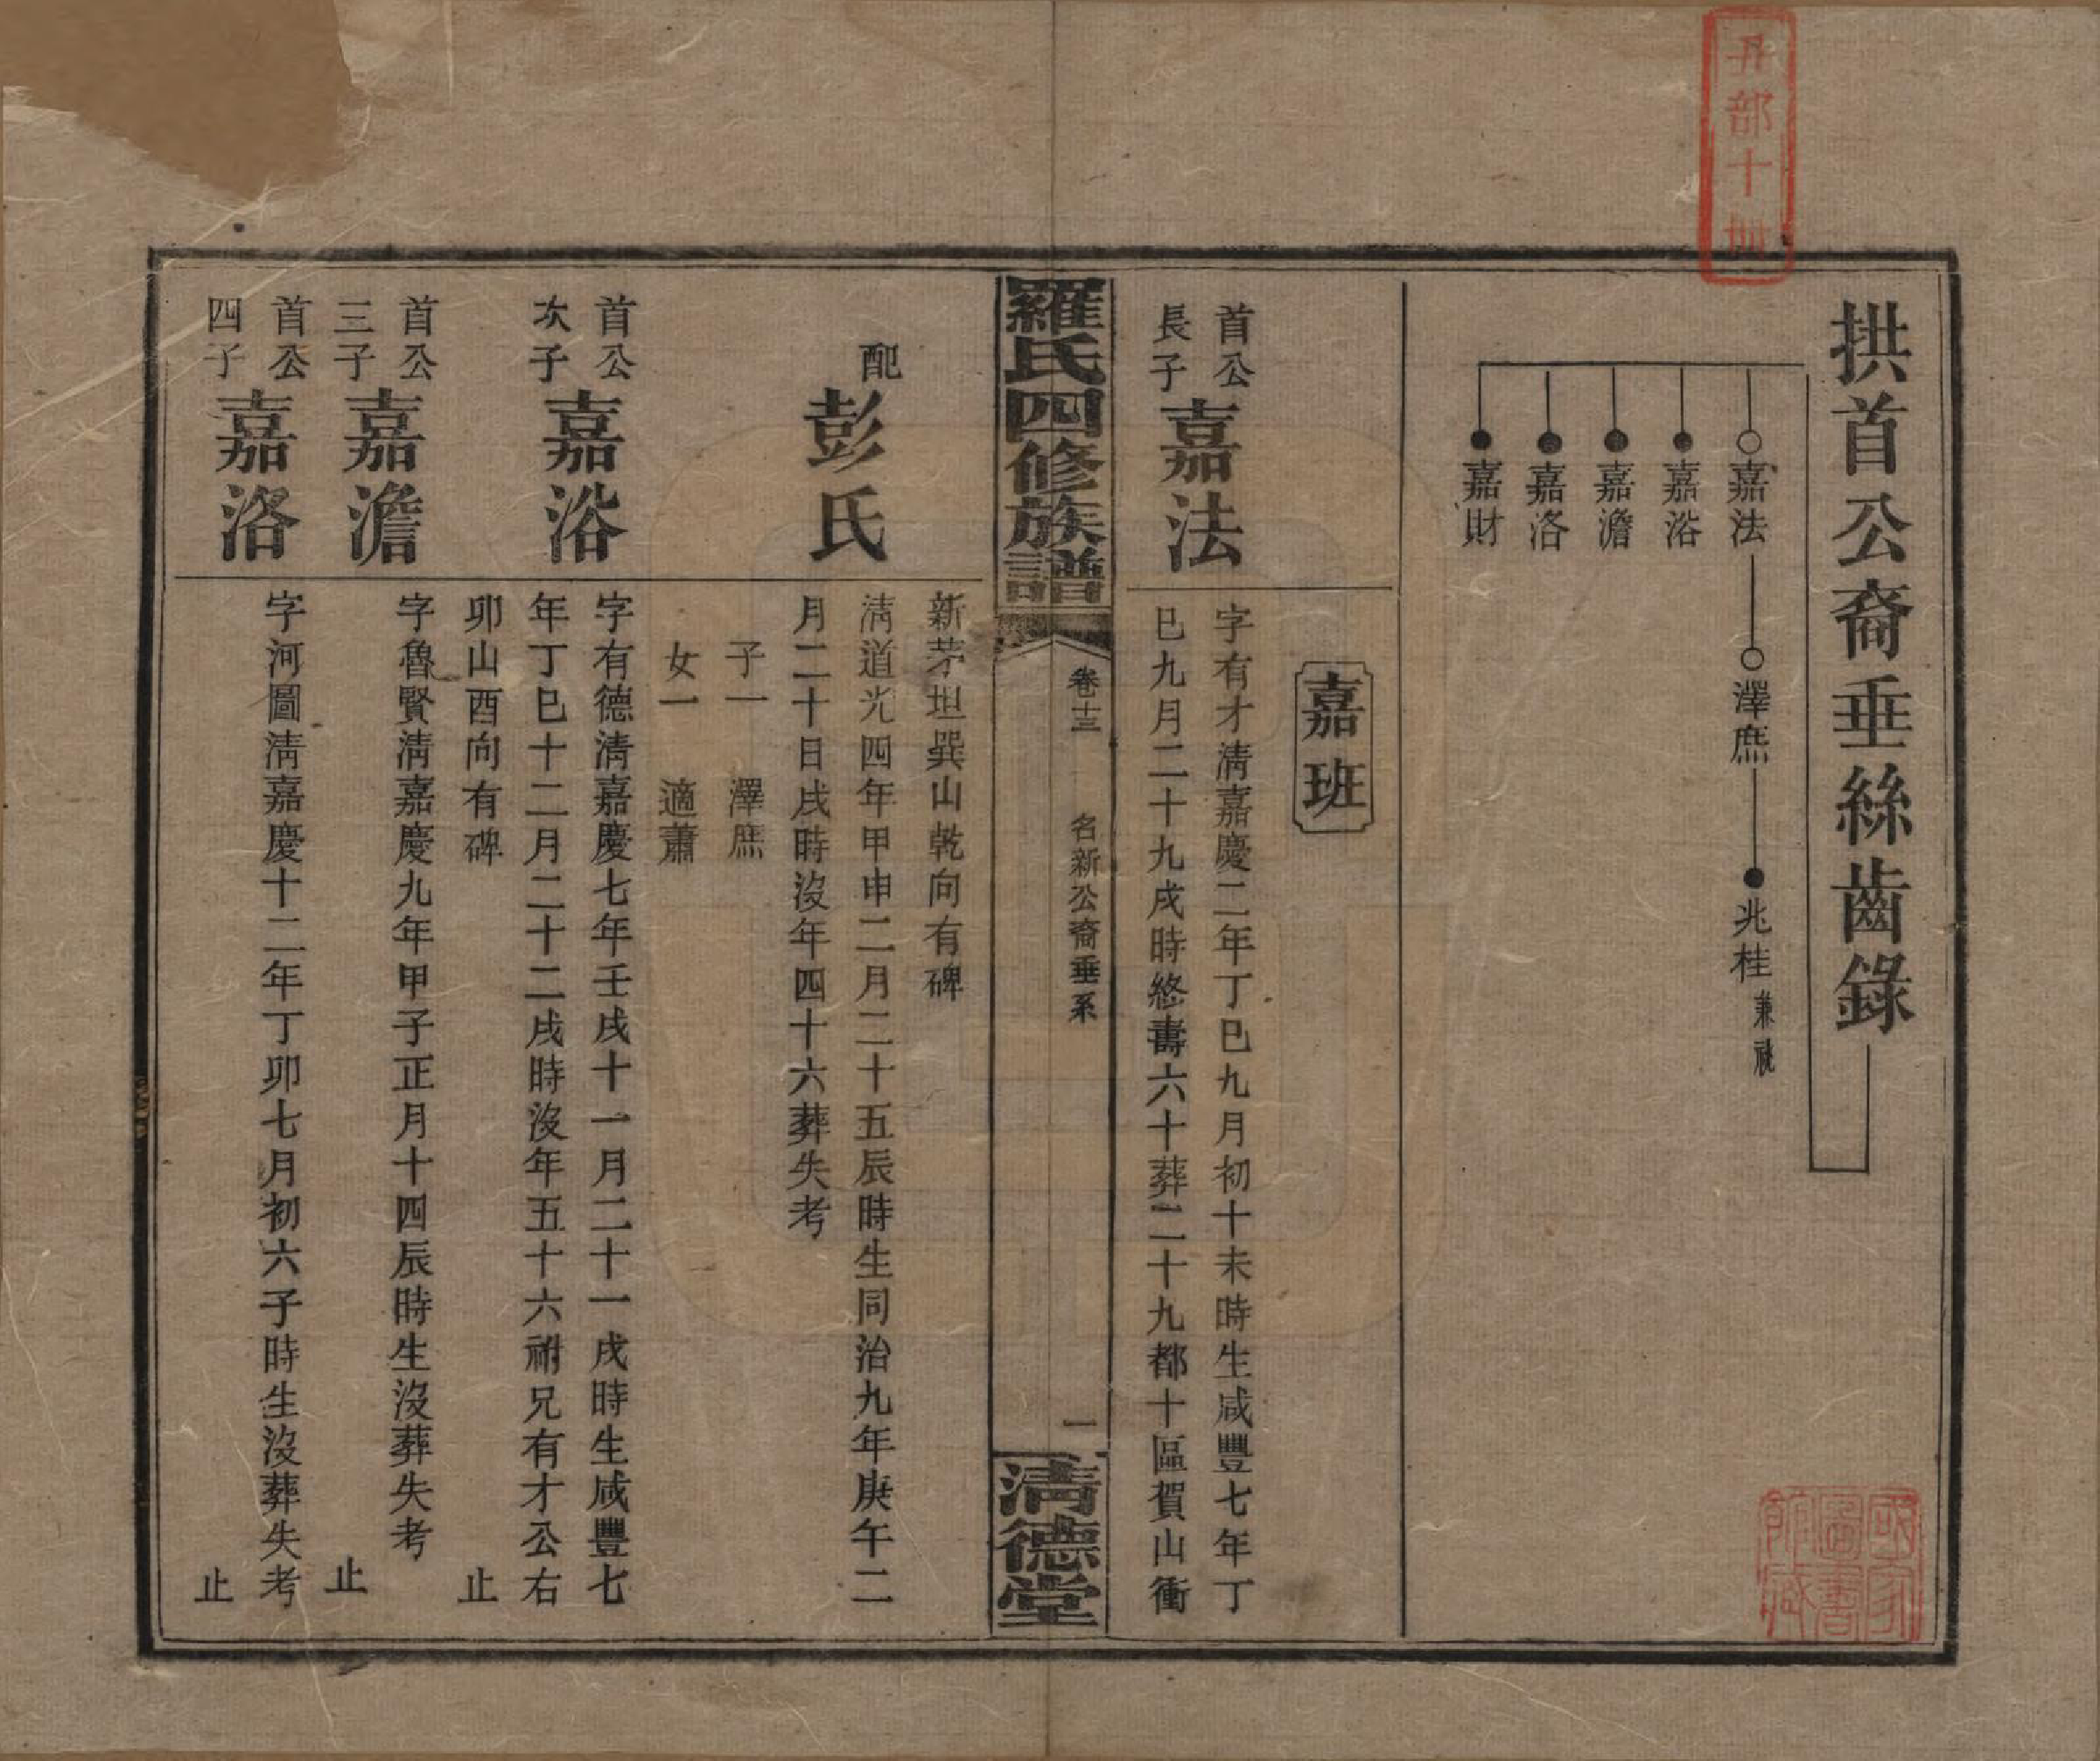 拱首公裔垂絲齒錄
嘉法
澤庶
兆桂
兼祧
嘉浴
嘉澹
嘉洛
嘉財
嘉班
首公
長子
嘉法
字有才淸嘉慶二年丁巳九月初十未時生咸豐七年丁
巳九月二十九戌時終壽六十葬二十九都十區賀山衝
羅氏四修族譜
卷十三
名新公裔垂系
一
淸德堂
新茅坦巽山乾向有碑
配
彭氏
淸道光四年甲申二月二十五辰時生同治九年庚午二
月二十日戌時沒年四十六葬失考
子一 澤庶
女一 適蕭
首公
次子
嘉浴
字有德淸嘉慶七年壬戌十一月二十一戌時生咸豐七
年丁巳十二月二十二戌時沒年五十六祔兄有才公右
卯山酉向有碑 止
首公
三子
嘉澹
字魯賢淸嘉慶九年甲子正月十四辰時生沒葬失考
止
首公
四子
嘉洛
字河圖淸嘉慶十二年丁卯七月初六子時生沒葬失考
止
國家
圖書
館藏